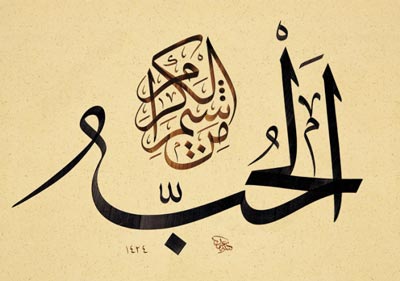 اَلْحُبُّ
مِنْ شِيَمِ الكِرَامِ
١٤٢٤